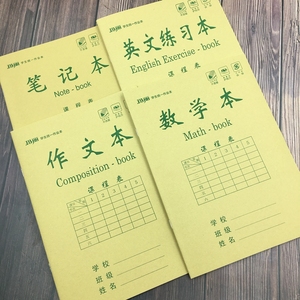 笔记本
Note - book
课程表
英文练习本
English Exercise - book
课程表
作文本
Composition - book
课程表
1 2 3 4 5
学校
班级
姓名
数学本
Math - book
课程表
1 2 3 4 5
学校
班级
姓名